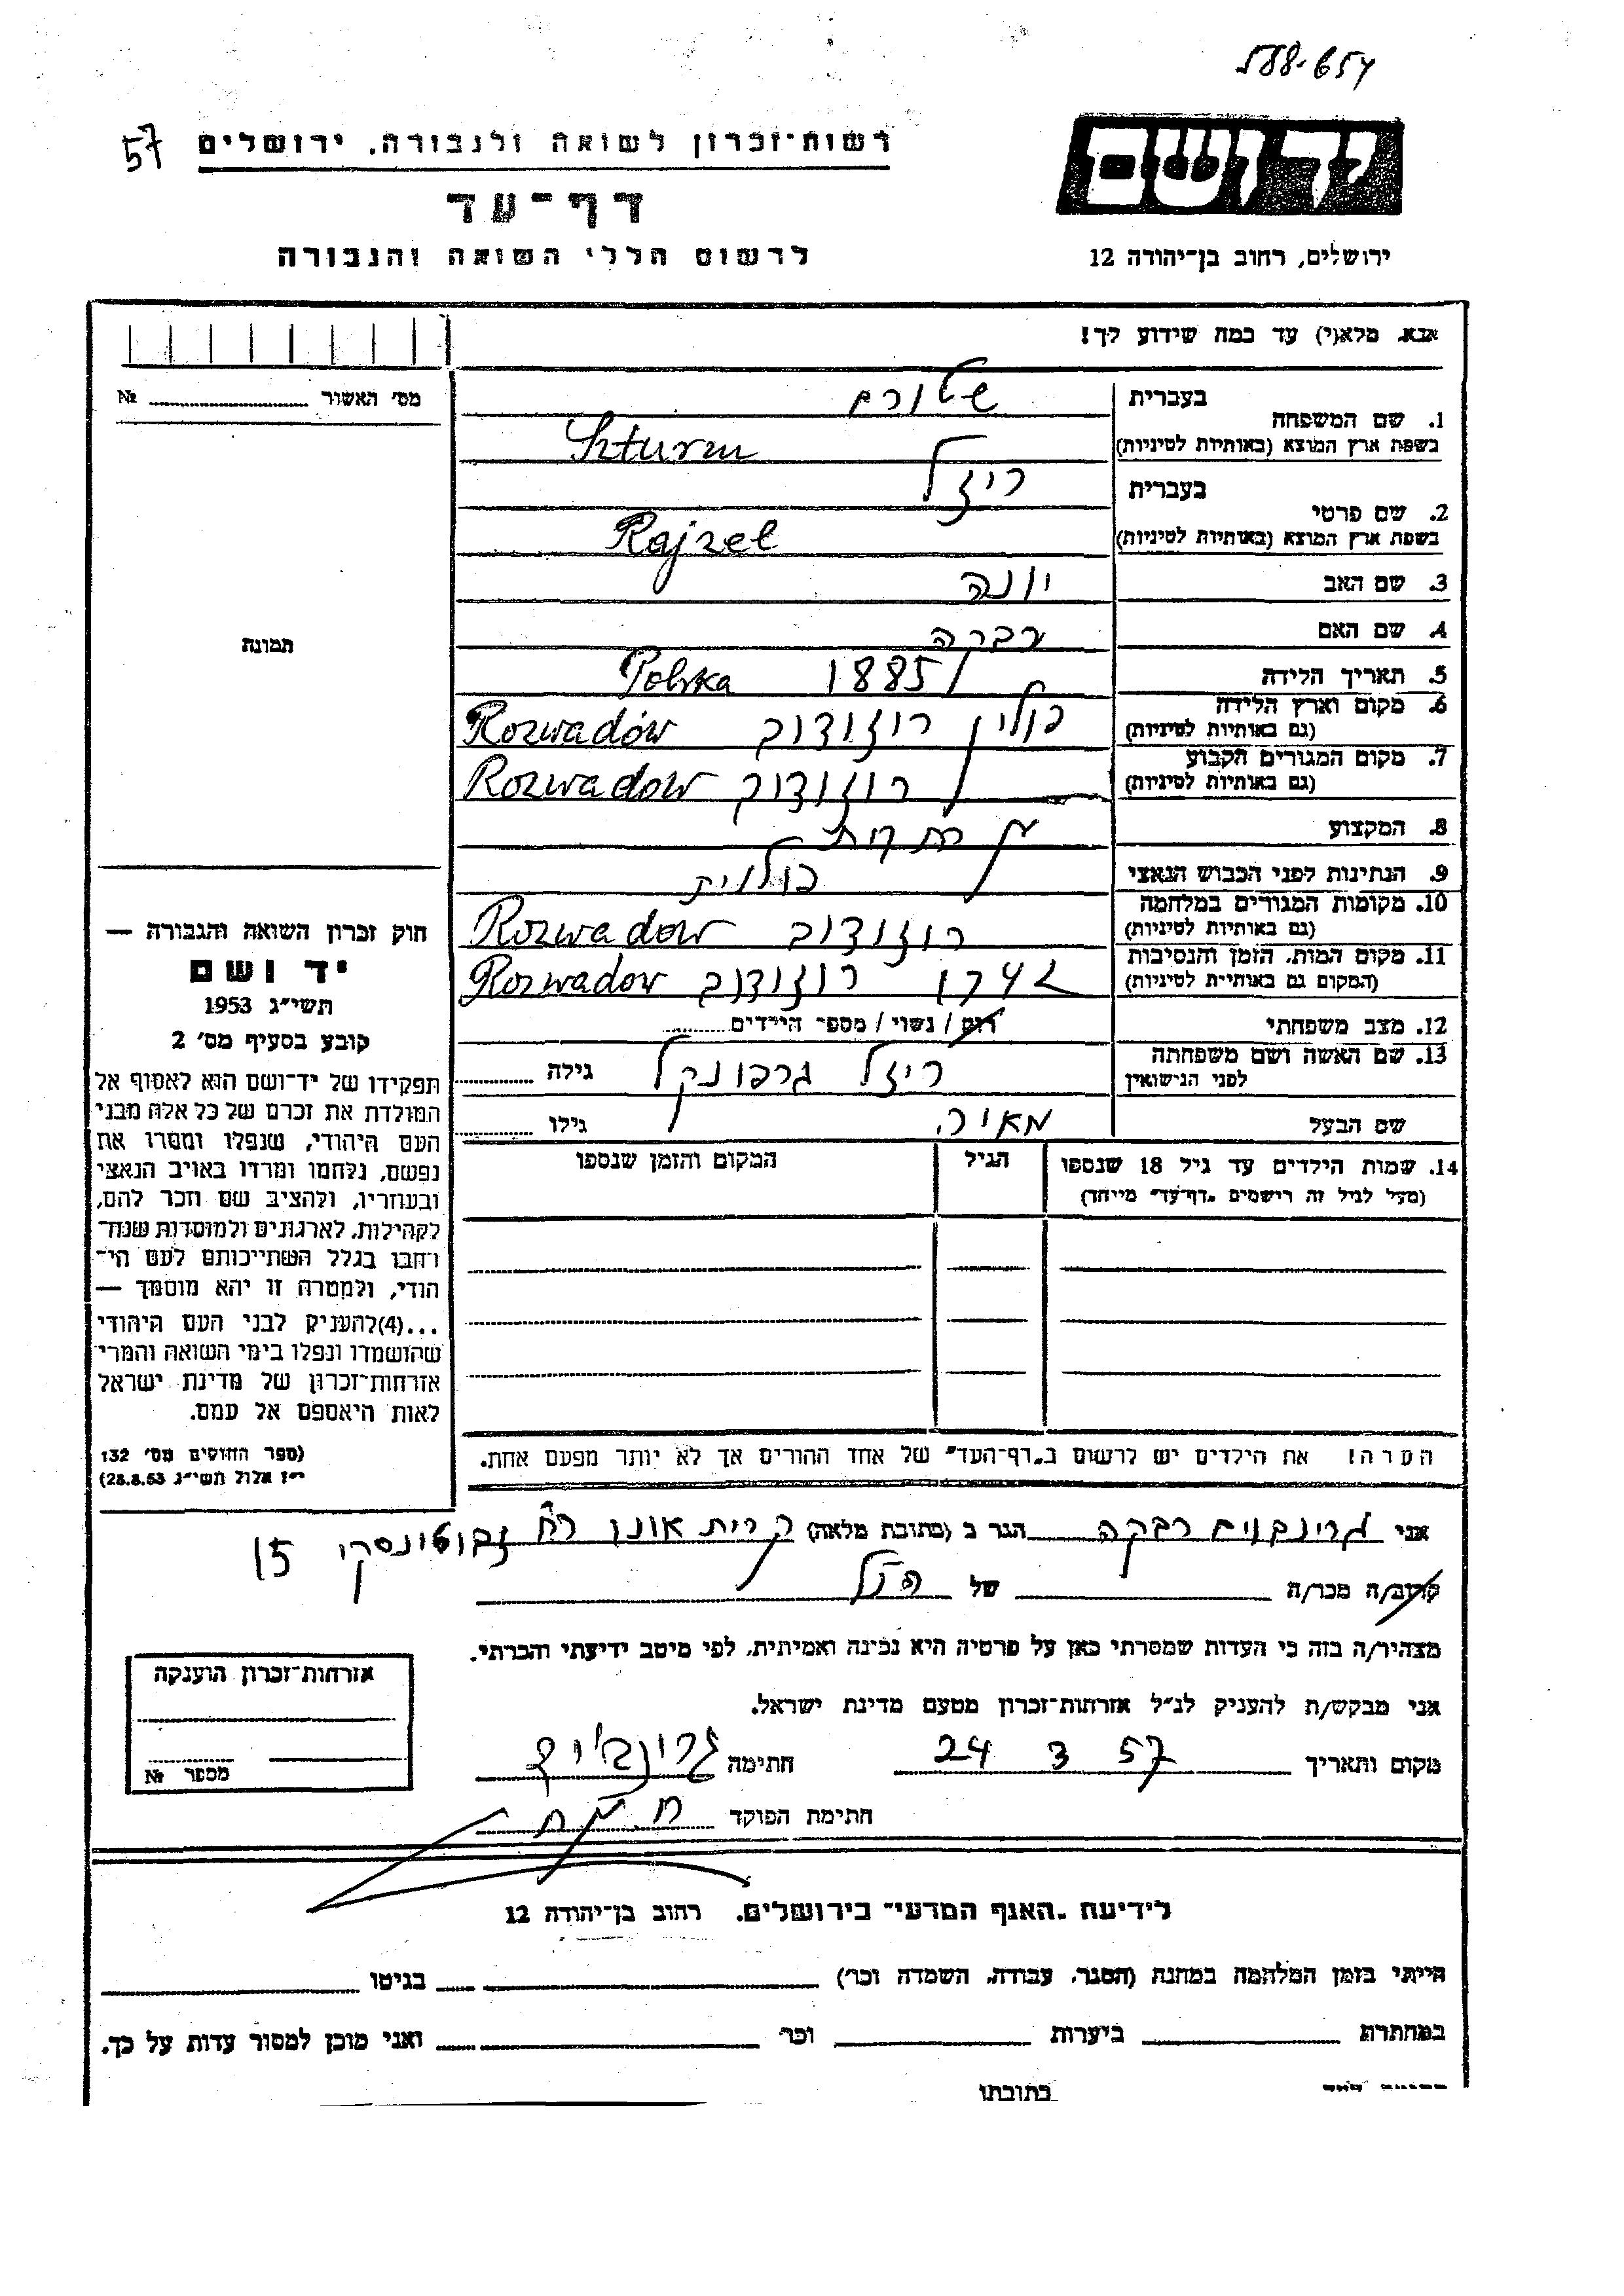 57
רשות־זכרון לשואה ולגבורה, ירושלים
דף־עד
לרשום חללי השואה והגבורה
יד ושם
ירושלים, רחוב בן־יהודה 12
אנא, מלא(י) עד כמה שידוע לך!
מס׳ האשור № 
1. שם המשפחה בעברית שטורם
בשפת ארץ המוצא (באותיות לטיניות) Szturm
2. שם פרטי בעברית ריזל
בשפת ארץ המוצא (באותיות לטיניות) Rajzel
3. שם האב יונה
4. שם האם רבקה
5. תאריך הלידה 1885 Polska
6. מקום וארץ הלידה (גם באותיות לטיניות) פולין רוזודוב Rozwadów
7. מקום המגורים הקבוע (גם באותיות לטיניות) רוזודוב Rozwadów
8. המקצוע
9. הנתינות לפני הכבוש הנאצי פולנית
10. מקומות המגורים במלחמה (גם באותיות לטיניות) רוזודוב Rozwadow
11. מקום המות, הזמן והנסיבות (המקום גם באותיות לטיניות) 1942 רוזודוב Rozwadow
12. מצב משפחתי רוק / נשוי / מספר הילדים
13. שם האשה ושם משפחתה לפני הנישואין ריזל גרפונקל גילה
שם הבעל מאיר גילו
14. שמות הילדים עד גיל 18 שנספו הגיל המקום והזמן שנספו
(מעל לגיל זה רושמים „דף־עד״ מיוחד)
הערה! את הילדים יש לרשום ב„דף־העד״ של אחד ההורים אך לא יותר מפעם אחת.
תמונה
חוק זכרון השואה והגבורה —
יד ושם
תשי״ג 1953
קובע בסעיף מס׳ 2
תפקידו של יד־ושם הוא לאסוף אל
המולדת את זכרם של כל אלה מבני
העם היהודי, שנפלו ומסרו את
נפשם, נלחמו ומרדו באויב הנאצי
ובעוזריו, ולהציב שם וזכר להם,
לקהילות, לארגונים ולמוסדות שנח־
רבו בגלל השתייכותם לעם הי־
הודי, ולמטרה זו יהא מוסמך —
...(4)להעניק לבני העם היהודי
שהושמדו ונפלו בימי השואה והמרי
אזרחות־זכרון של מדינת ישראל
לאות היאספם אל עמם.
(ספר החוקים מס׳ 132
י״ז אלול תשי״ג 28.8.53)
אני גרינבוים רבקה הגר ב (כתובת מלאה) קרית אונו רח זבוטינסקי 15
קרוב/ה מכר/ה של הנ״ל
מצהיר/ה בזה כי העדות שמסרתי כאן על פרטיה היא נכונה ואמיתית, לפי מיטב ידיעתי והכרתי.
אני מבקש/ת להעניק לנ״ל אזרחות־זכרון מטעם מדינת ישראל.
מקום ותאריך 24 3 57 חתימה
חתימת הפוקד
אזרחות־זכרון הוענקה
מספר №
לידיעת „האגף המדעי״ בירושלים, רחוב בן־יהודה 12
הייתי בזמן המלחמה במחנה (הסגר, עבודה, השמדה וכו׳) בגיטו
במחתרת ביערות וכו׳ ואני מוכן למסור עדות על כך.
כתובתו